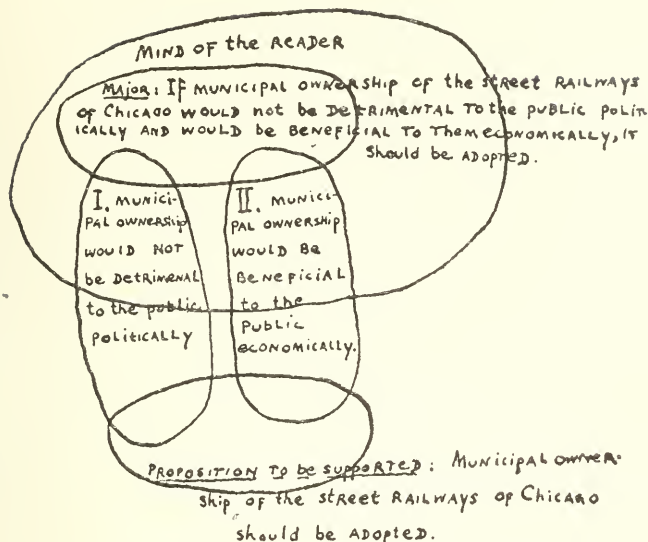 MIND OF the READER
MAJOR: IF MUNICIPAL OWNERSHIP OF the STREET RAILWAYS
OF CHICAGO WOULD not be DETRIMENTAL TO the PUBLIC POLIT-
ICALLY AND WOULD be BENEFICIAL TO Them ECONOMICALLY, IT
should be ADOPTED.
I. MUNICI-
PAL OWNERSHIP
WOULD NOT
be DETRIMENAL
to the public
POLITICALLY
II. MUNICI-
PAL OWNERSHIP
WOULD BE
BENEFICIAL
to the
PUBLIC
ECONOMICALLY.
PROPOSITION TO be SUPPORTED: MUNICIPAL OWNER-
SHIP OF the STREET RAILWAYS OF CHICAGO
should be ADOPTED.